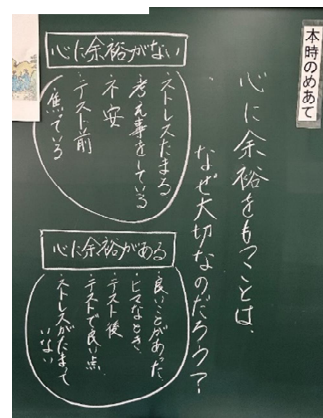 本時のめあて
心に余裕をもつことは、
なぜ大切なのだろう?
心に余裕がない
・ストレスたまる
・考え事をしている
・不安
・テスト前
・焦っている
心に余裕がある
・良いことがあった
・ヒマなとき
・テスト後
・テストで良い点
・ストレスがたまって
いない